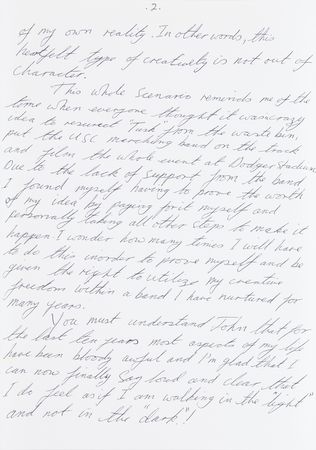 .2.
of my own reality. In other words, this
heartfelt type of creativity is not out of
Character.
This whole Scenario reminds me of the
time when everyone thought it was crazy
idea to resurrect "Tusk" from the waste bin,
put the USC marching band on the track
and film the whole event at Dodger Stadium.
Due to the lack of support from the band
I found myself having to prove the worth
of my idea by paying for it myself and
personally taking all other steps to make it
happen. I wonder how many times I will have
to do this inorder to prove myself and be
given the right to utilize my creative
freedom within a band I have nurtured for
many years.
You must understand John that for
the last ten years most aspects of my life
have been bloody awful and I'm glad that I
can now finally Say loud and clear, that
I do feel as if I am walking in the "light"
and not in the "dark"!